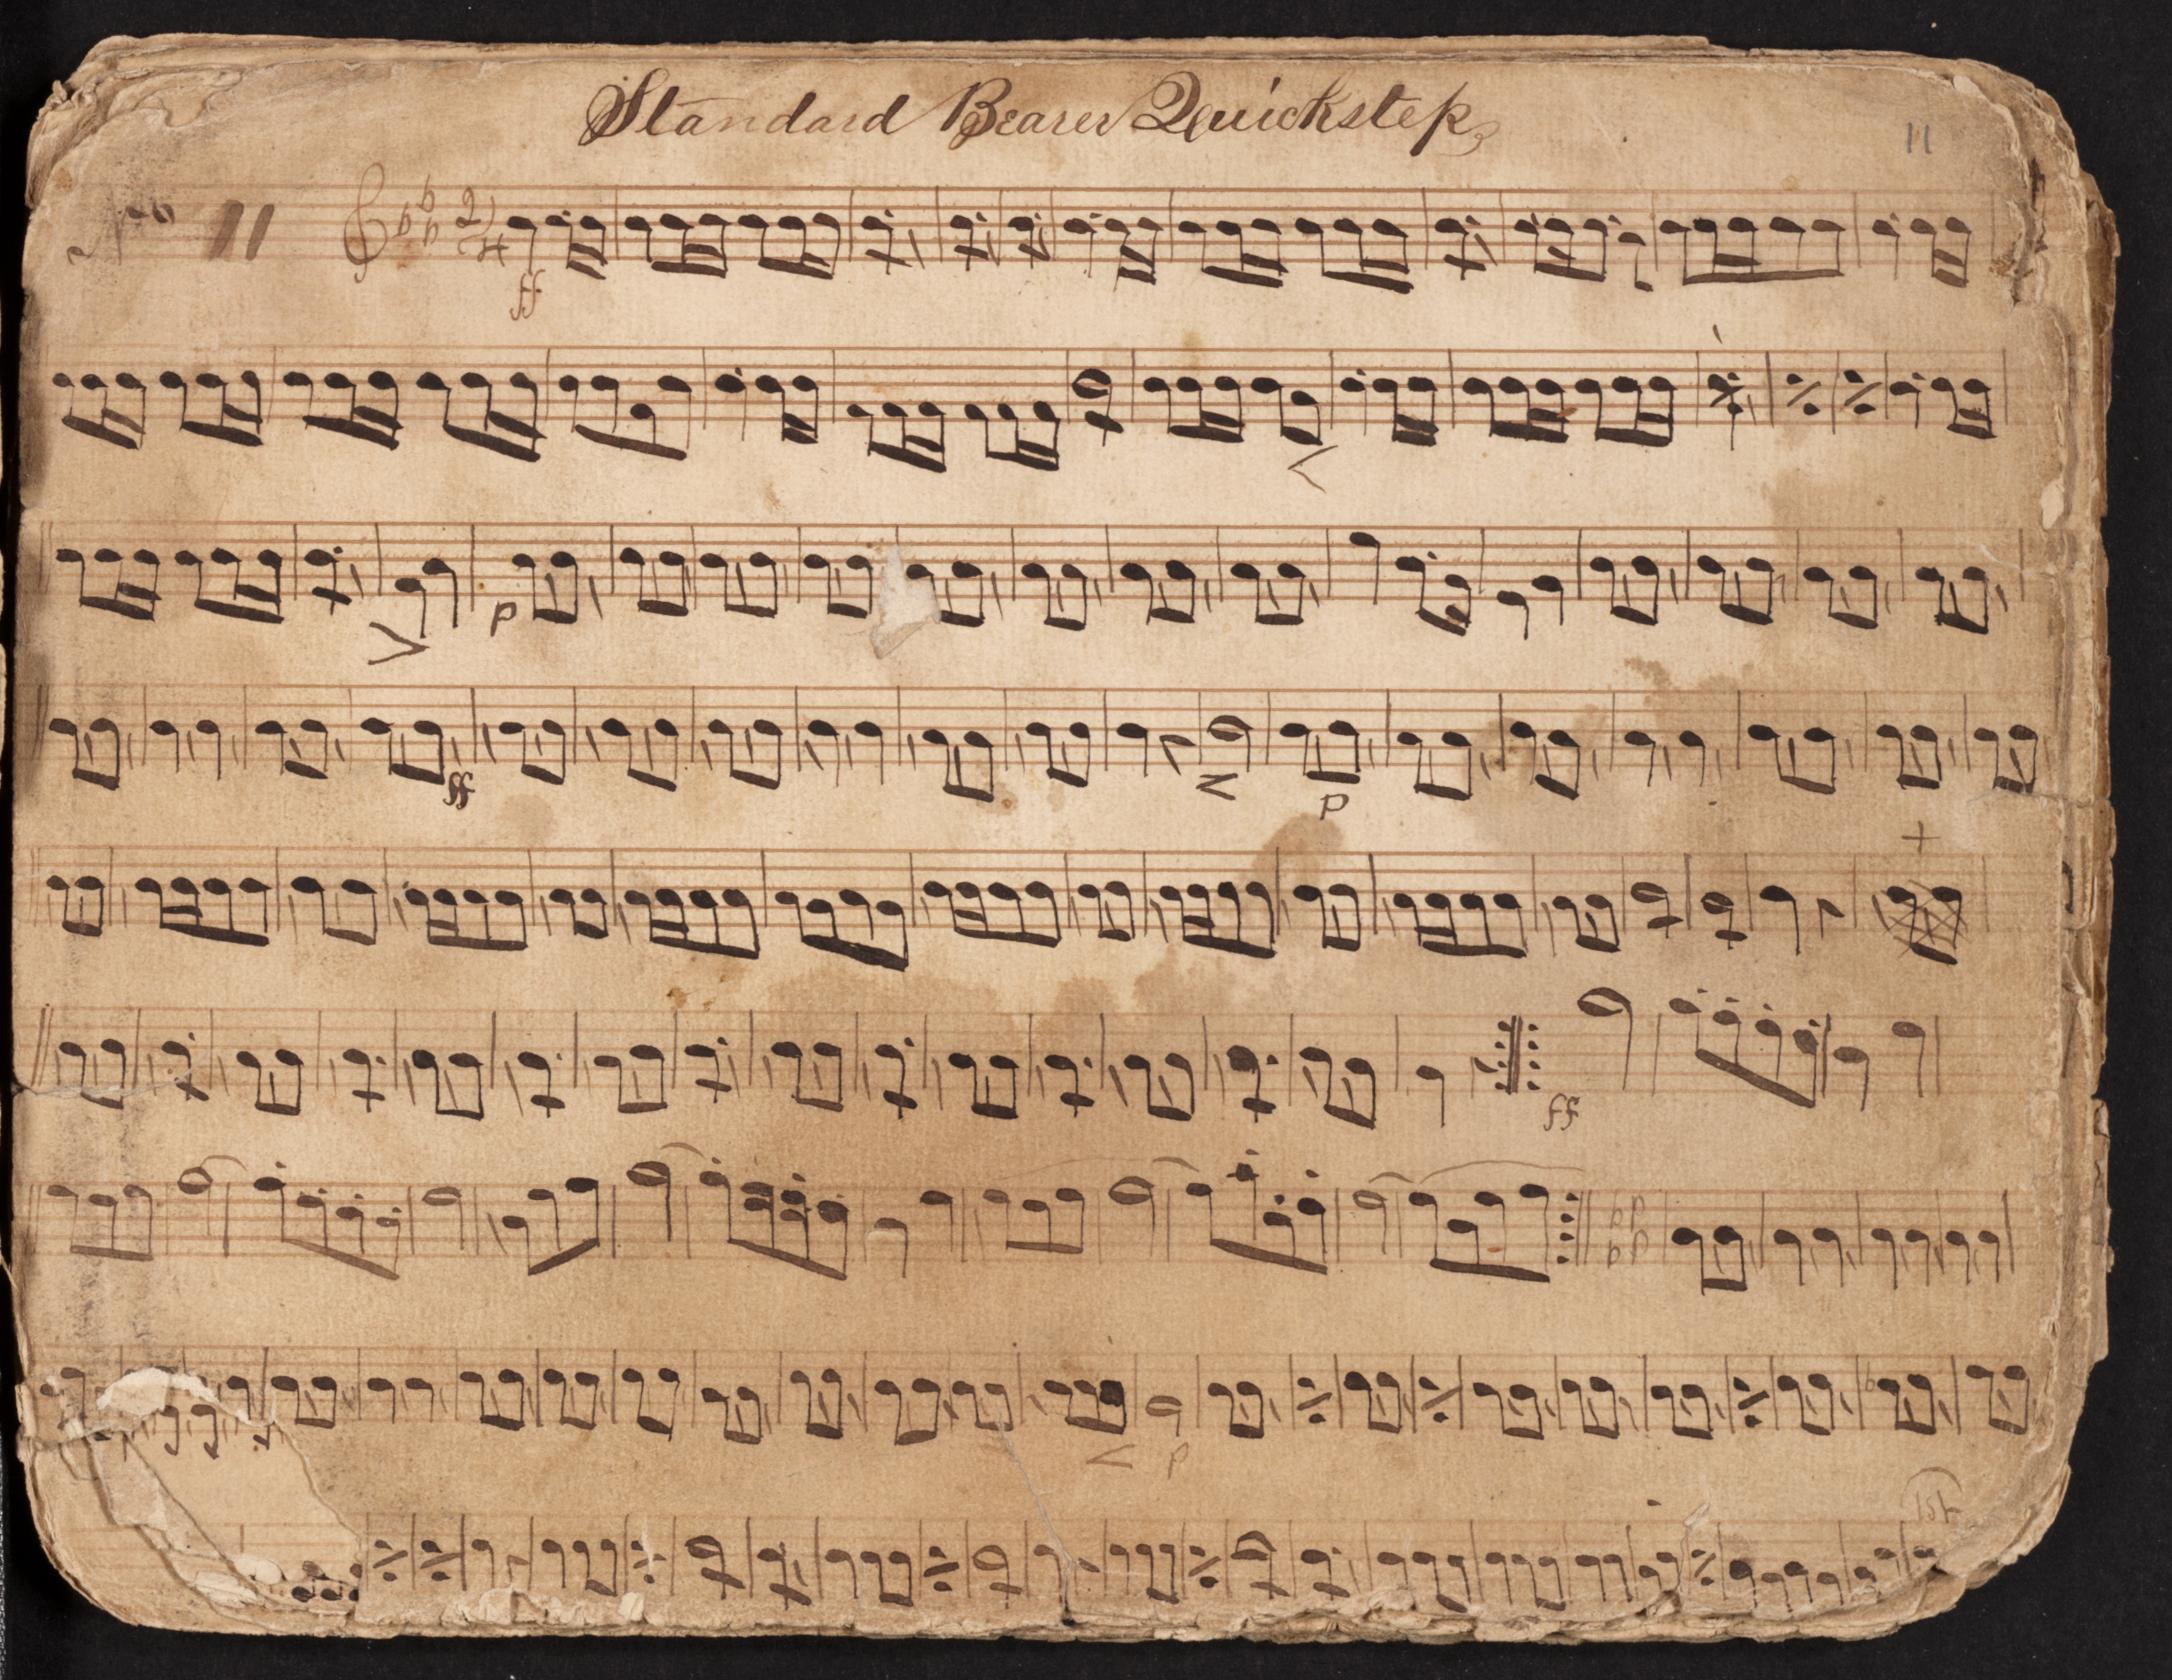 Standard Bearer Quickstep
11
No 11
2/4
ff
p
ff
p
ff
p
1st